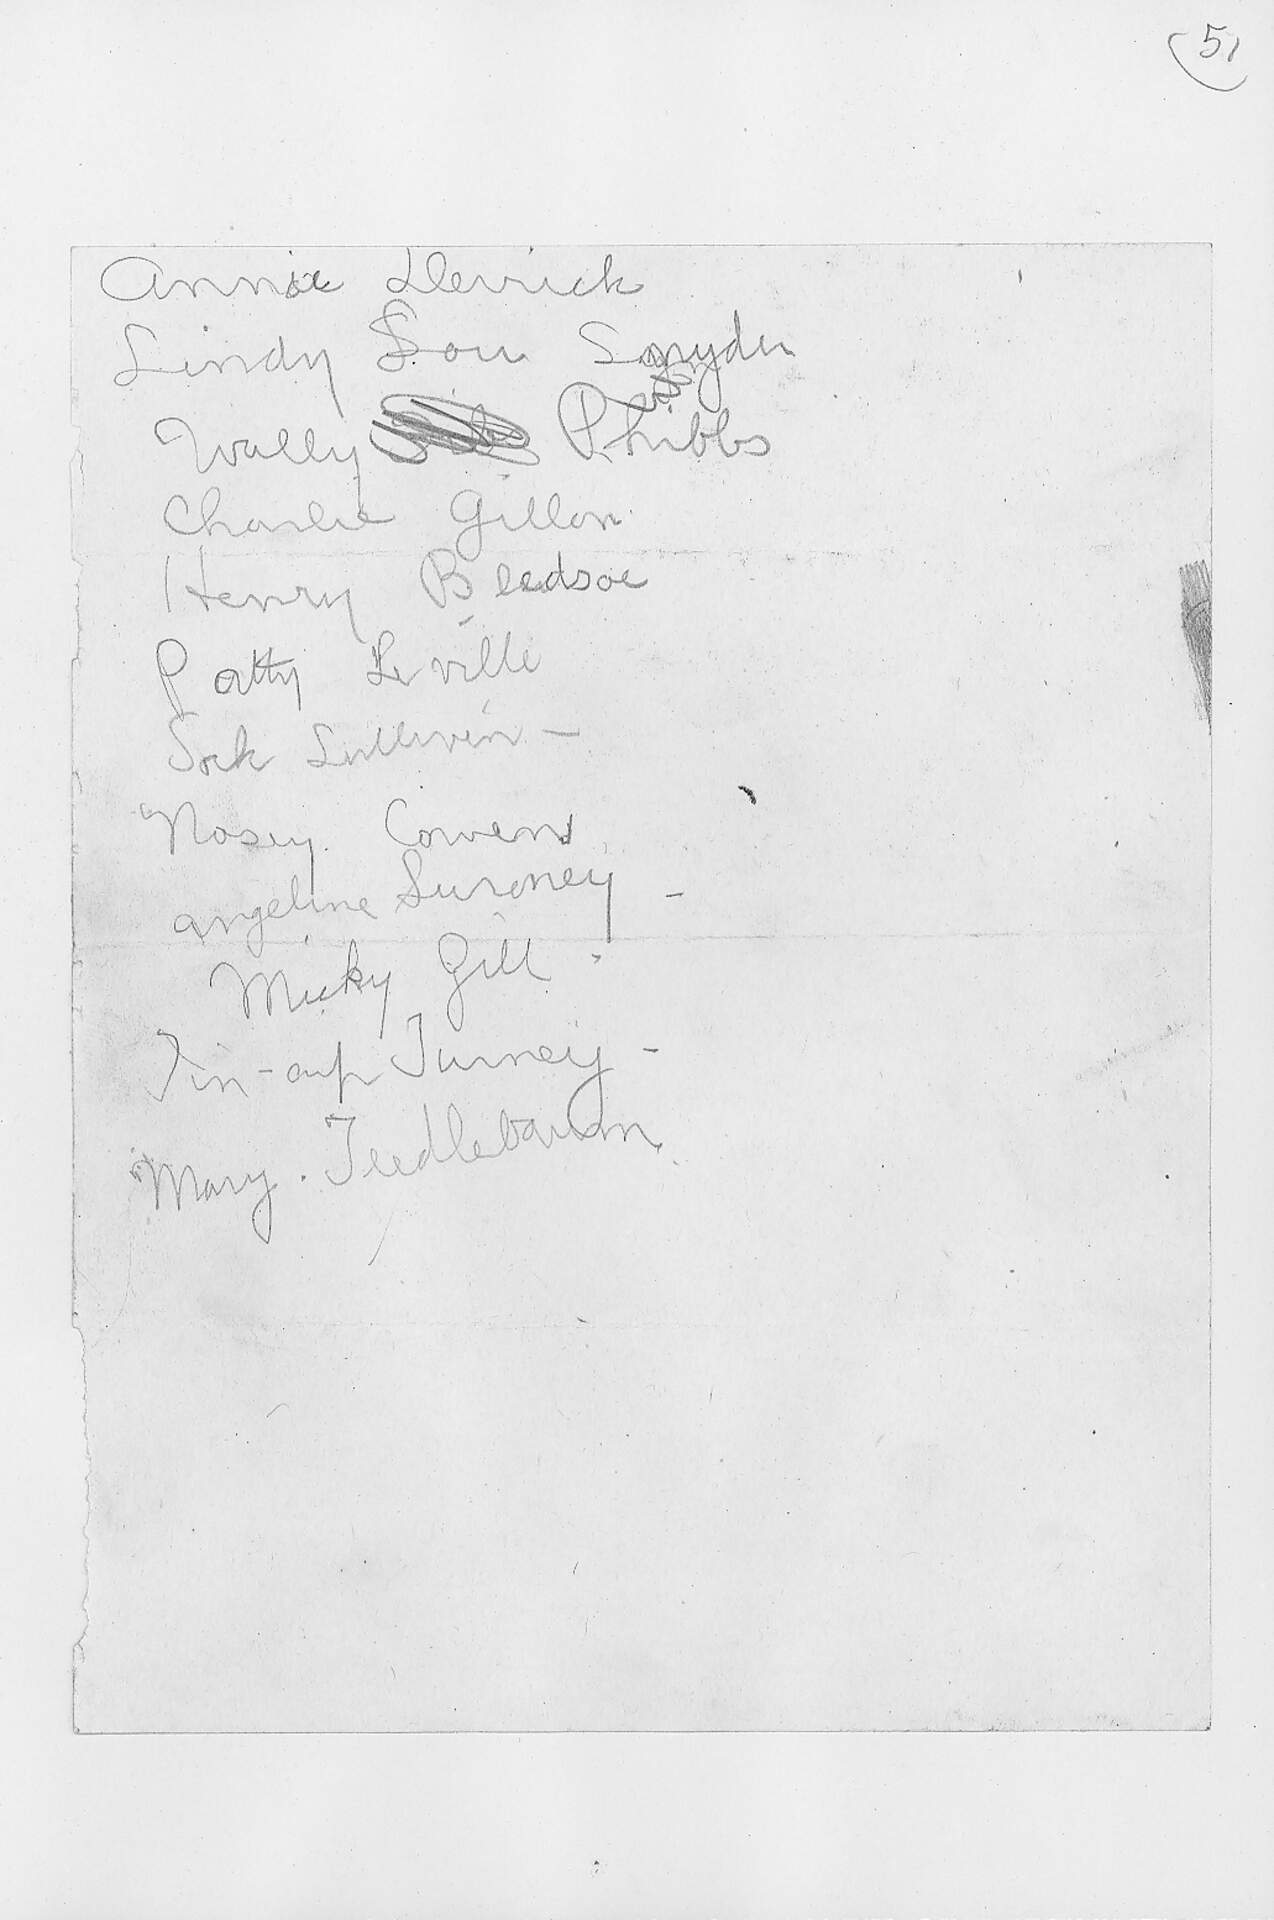 51
Annie Derrick
Lindy Lou Snyder
Wally Phibbs
Charlie Gillon
Henry Bledsoe
Patty Leville
Sock Sullivin -
Nosey Cowen
Angeline Luroney -
Micky Gill
Tin-cup Turney -
Mary. Teedlebaum